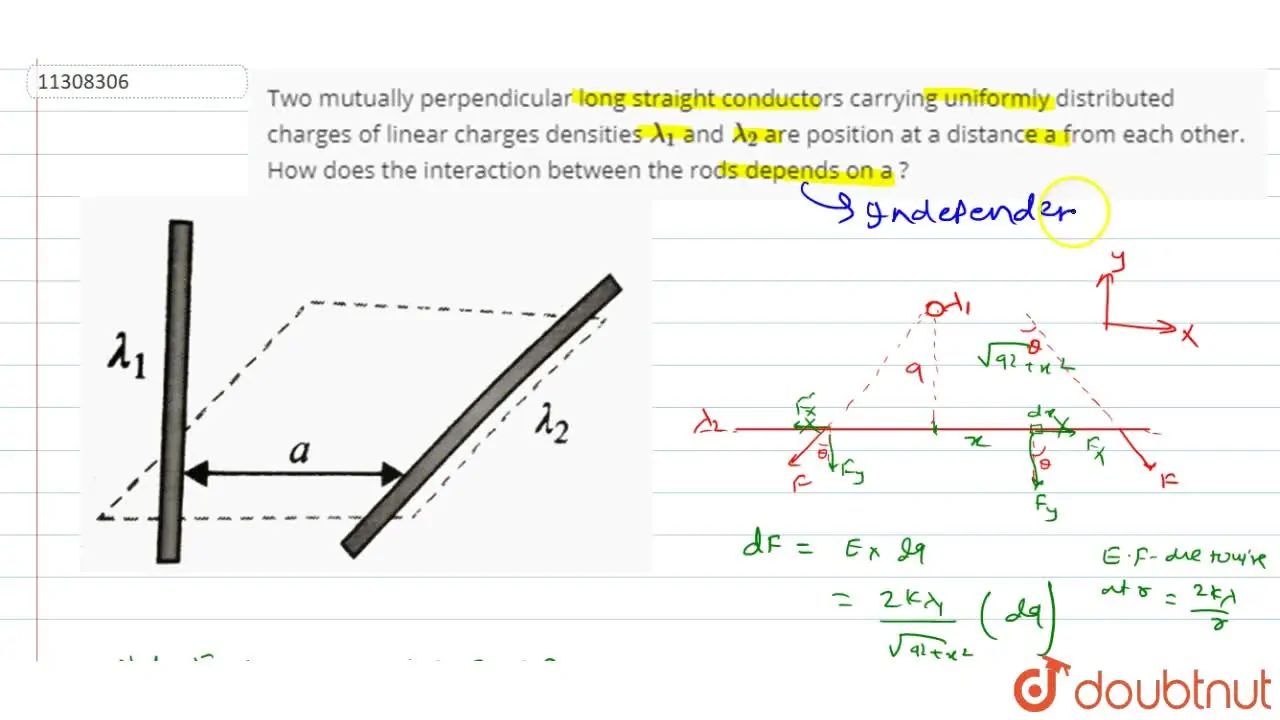 11308306
Two mutually perpendicular long straight conductors carrying uniformly distributed
charges of linear charges densities λ₁ and λ₂ are position at a distance a from each other.
How does the interaction between the rods depends on a ?
Independen
y
x
λ₁
λ₁
λ₂
a
a
θ
√a²+x²
λ₂
Fx
dx
x
Fx
θ
Fy
θ
F
Fy
F
dF = E × dq
= 2Kλ₁/√a²+x² (dq)
E.F due to wire
at r = 2Kλ/r
doubtnut